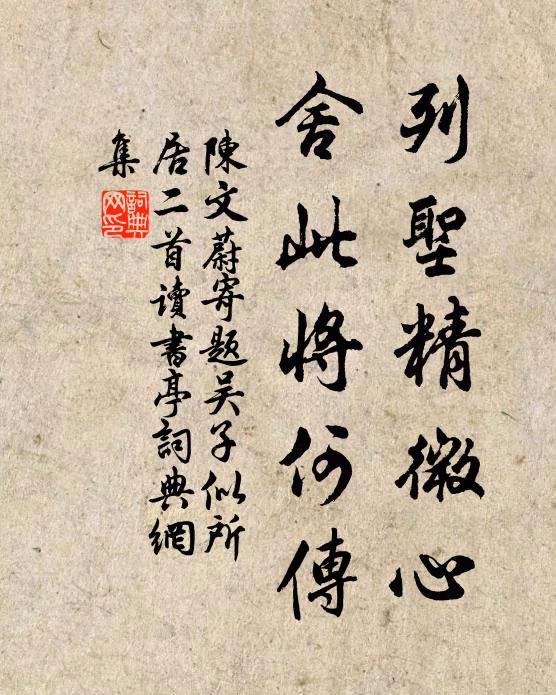 列聖精微心
舍此將何傳
陳文蔚寄題吳子似所
居二首讀書亭詞典網
集
詞典
网印